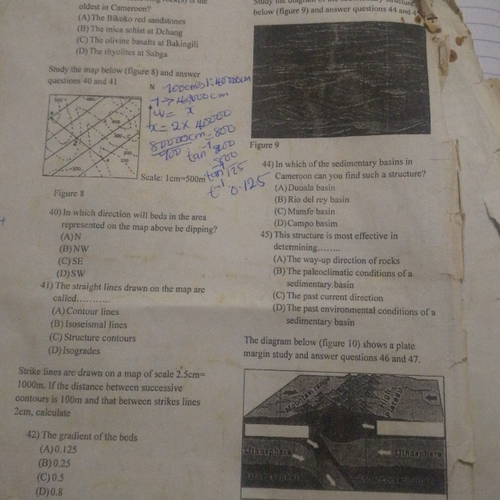 oldest in Cameroon?
(A) The Bikoko red sandstones
(B) The mica schist at Dchang
(C) The olivine basalts at Bakingili
(D) The rhyolites at Sabga
Study the map below (figure 8) and answer
questions 40 and 41
N
Scale: 1cm=500m
Figure 8
40) In which direction will beds in the area
represented on the map above be dipping?
(A) N
(B) NW
(C) SE
(D) SW
41) The straight lines drawn on the map are
called...........
(A) Contour lines
(B) Isoseismal lines
(C) Structure contours
(D) Isogrades
Strike lines are drawn on a map of scale 2.5cm=
1000m. If the distance between successive
contours is 100m and that between strikes lines
2cm, calculate
42) The gradient of the beds
(A) 0.125
(B) 0.25
(C) 0.5
(D) 0.8
x = 2 x 40000
80000cm = 800
0.125
below (figure 9) and answer questions 44 and
Figure 9
44) In which of the sedimentary basins in
Cameroon can you find such a structure?
(A) Duoala basin
(B) Rio del rey basin
(C) Mamfe basin
(D) Campo basim
45) This structure is most effective in
determining........
(A) The way-up direction of rocks
(B) The paleoclimatic conditions of a
sedimentary basin
(C) The past current direction
(D) The past environmental conditions of a
sedimentary basin
The diagram below (figure 10) shows a plate
margin study and answer questions 46 and 47.
Lithosphere
Lithosphere